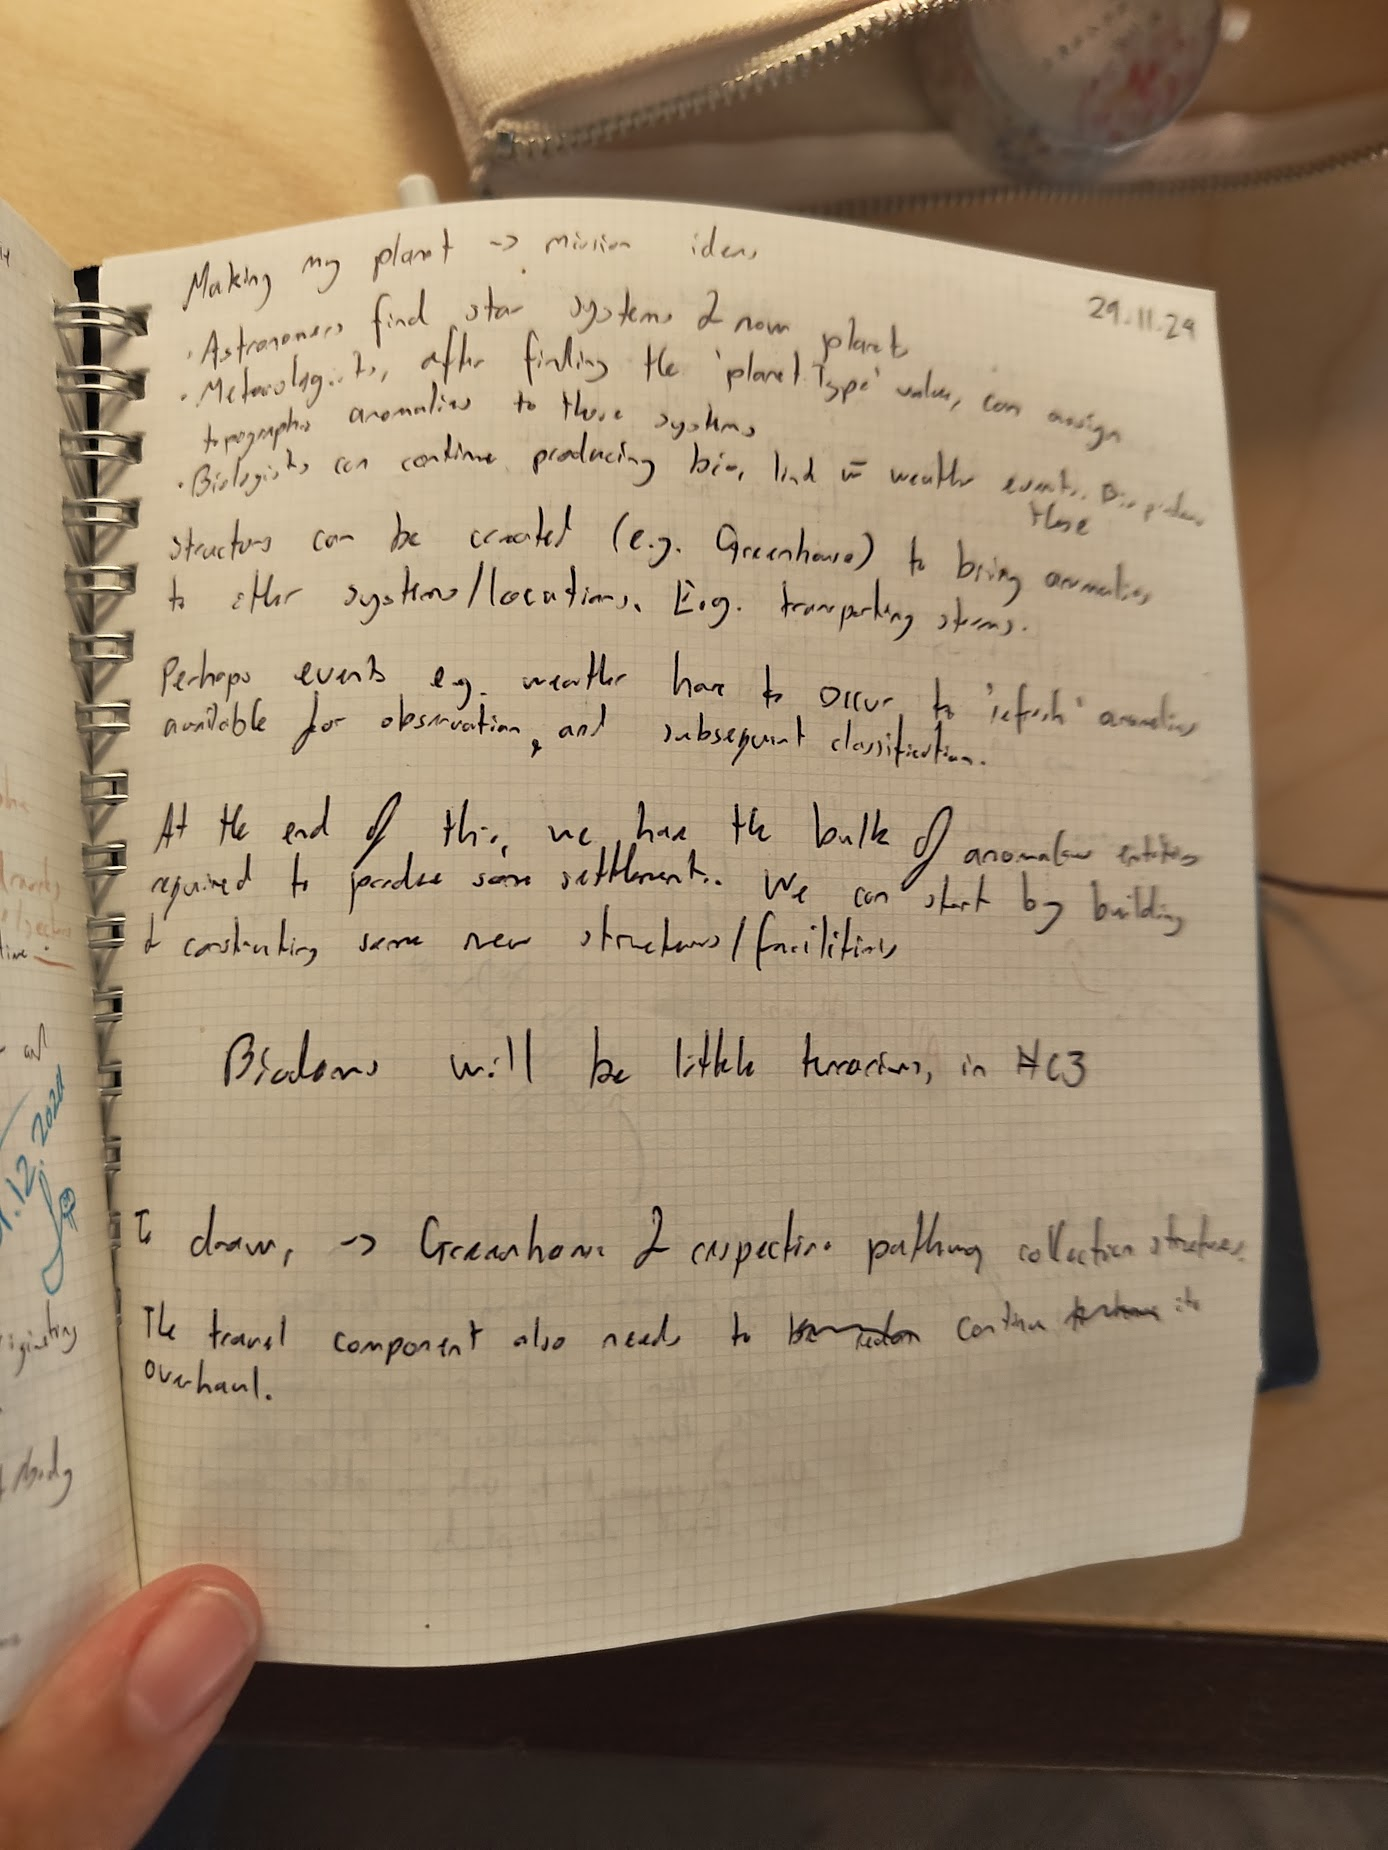 Making my planet -> mission ideas
29.11.24
· Astronomers find star systems & new planets
· Meteorologists, after finding the 'planet Type' value, can assign
topographic anomalies to those systems
· Biologists can continue producing bio, link = weather events.
these
structures can be created (e.g. Greenhouse) to bring anomalies
to other systems/locations. E.g. transporting storms.
Perhaps events e.g. weather have to occur to 'refresh' anomalies
available for observation, and subsequent classification.
At the end of this, we have the bulk of anomalous entities
required to produce some settlements. We can start by building
& constructing some new structures/facilities
Biodomes will be little terrariums, in #C3
To draw, -> Greenhouse & respective collection structures.
The travel component also needs to continue its
overhaul.
12.2024
iginating